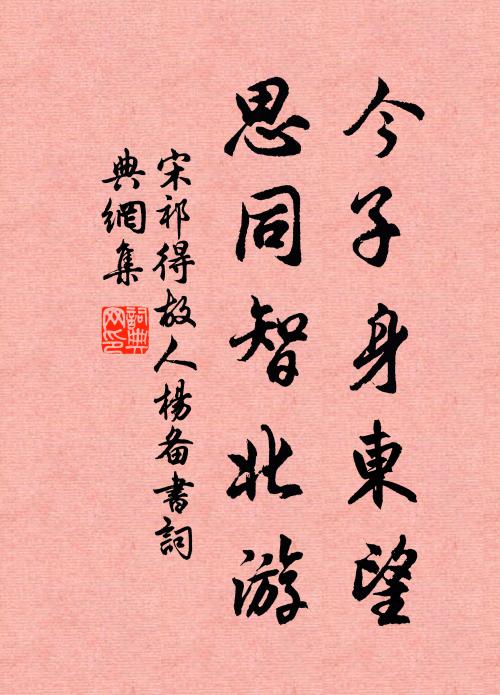 今子身東望
思同智北游
宋祁得故人楊备書詞
典網集
詞典網印